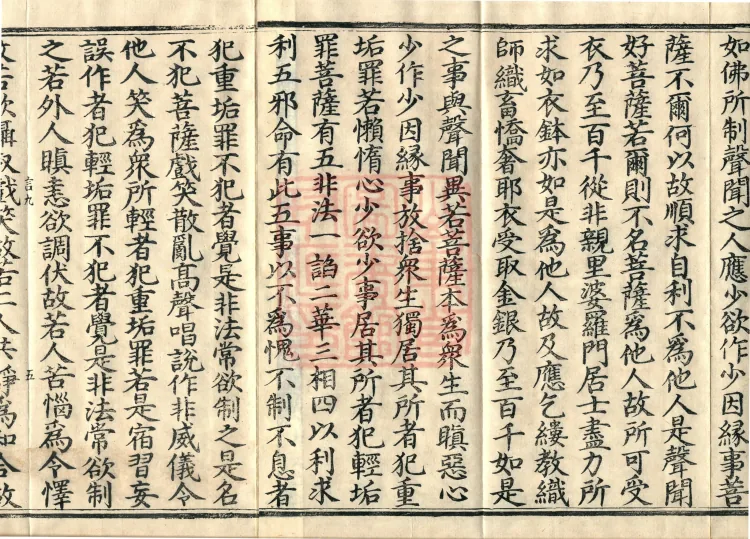 如佛所制聲聞之人應少欲作少因緣事菩
薩不爾何以故順求自利不為他人是聲聞
好菩薩若爾則不名菩薩為他人故所可受
衣乃至百千從非親里婆羅門居士盡力所
求如衣鉢亦如是為他人故及應乞縷教織
師織畜憍奢耶衣受取金銀乃至百千如是
之事與聲聞異若菩薩本為衆生而瞋惡心
少作少因緣事放捨衆生獨居其所者犯重
垢罪若懶惰心少欲少事居其所者犯輕垢
罪菩薩有五非法一諂二華三相四以利求
利五邪命有此五事以不為愧不制不息者
犯重垢罪不犯者覺是非法常欲制之是名
不犯菩薩戲笑散亂高聲唱說作非威儀令
他人笑為衆所輕者犯重垢罪若是宿習妄
誤作者犯輕垢罪不犯者覺是非法常欲制
之若外人瞋恚欲調伏故若人苦惱為令懌
言九
五